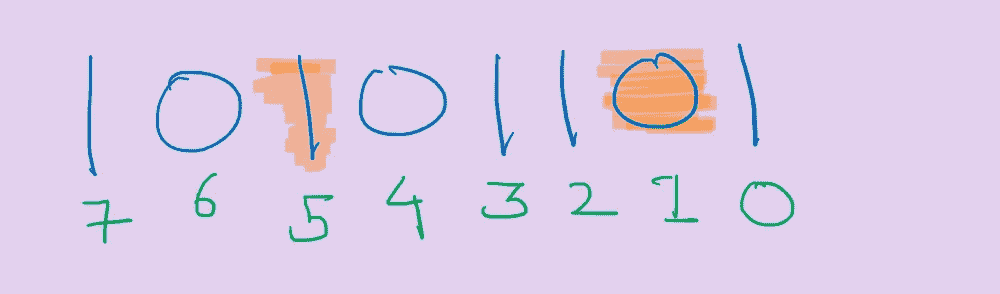 1 0 1 0 1 1 0 1
7 6 5 4 3 2 1 0